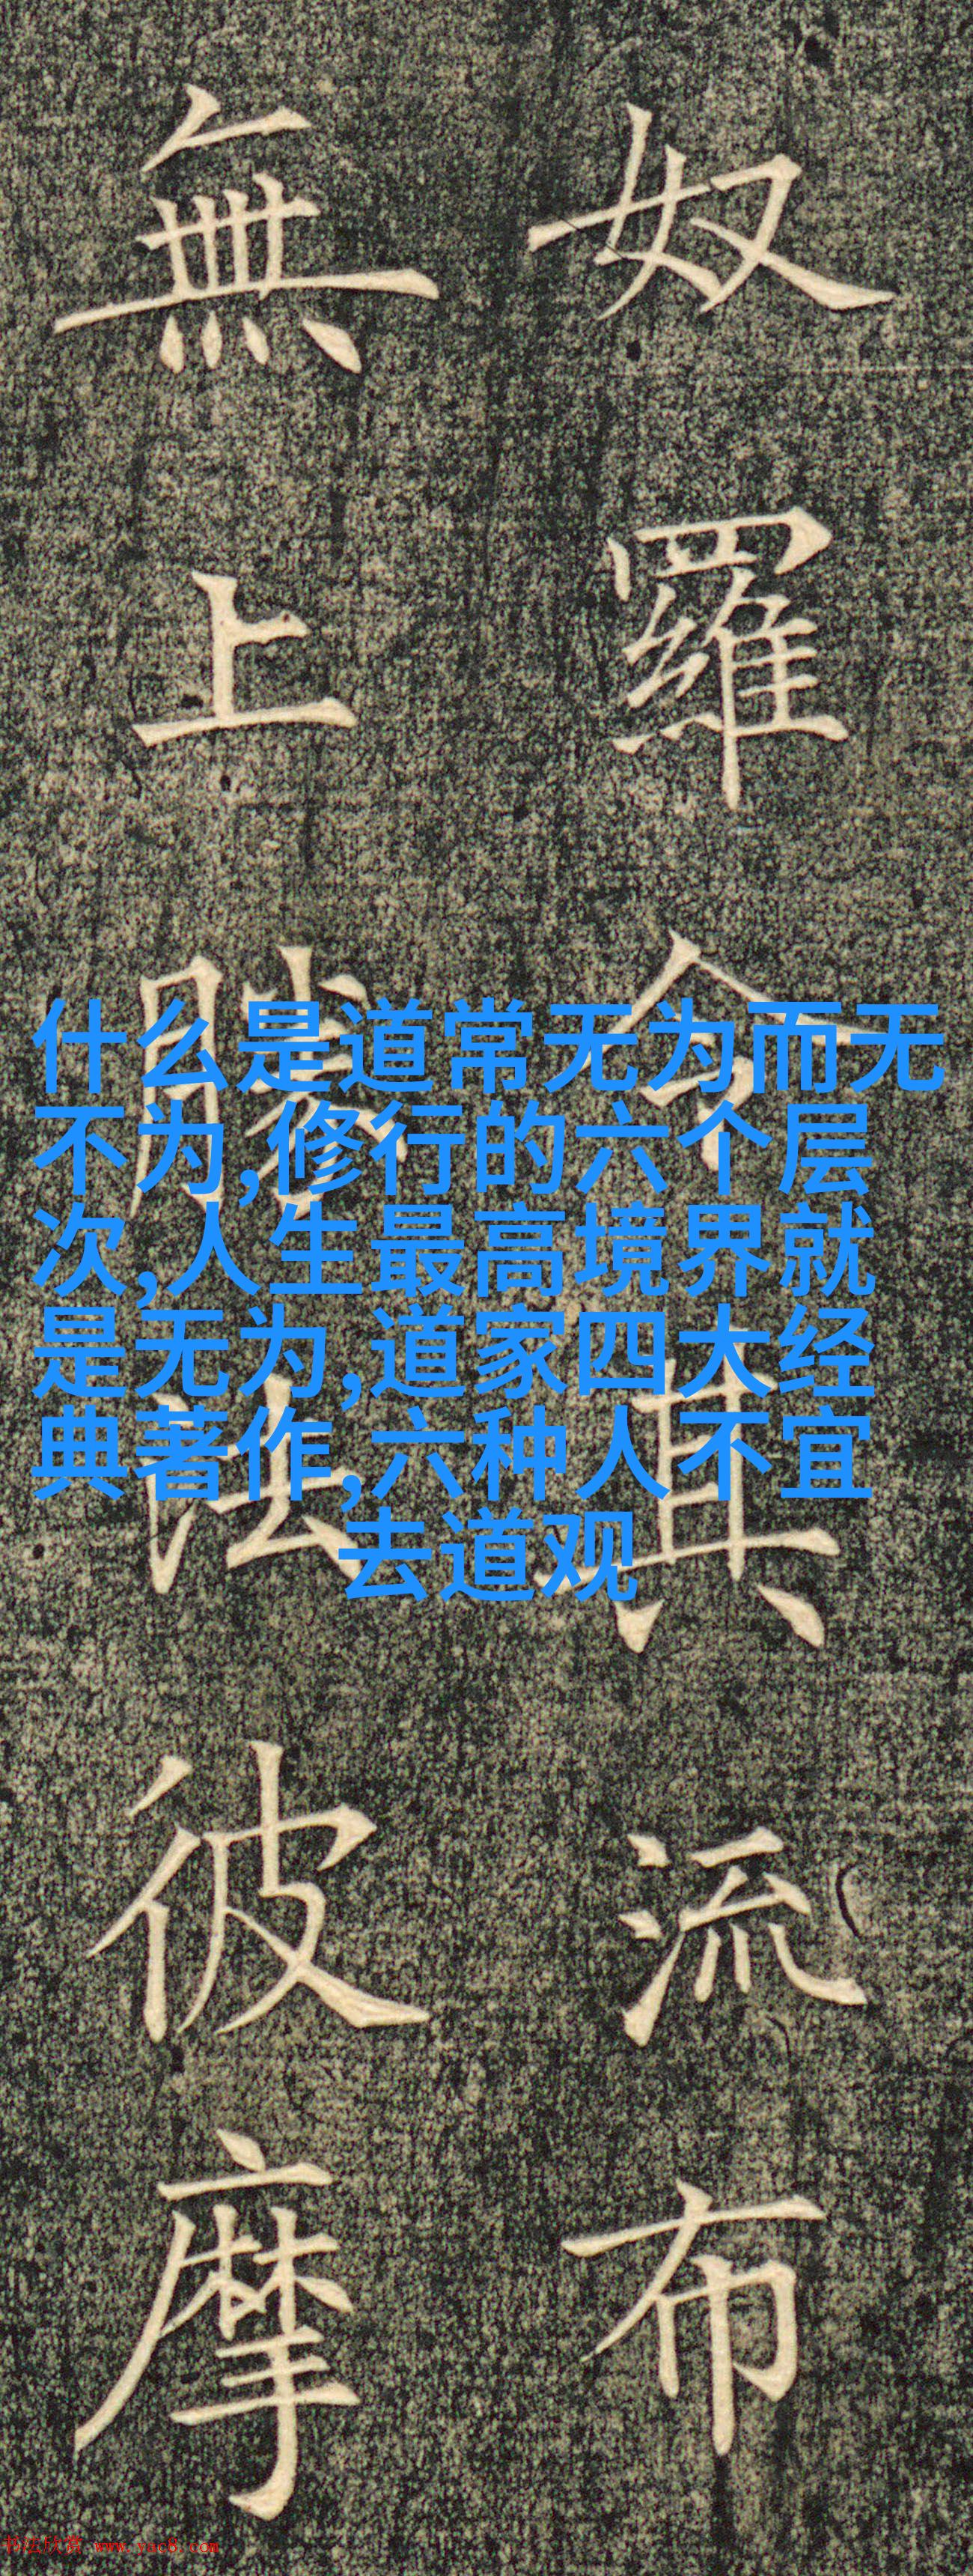 奴羅令其流布
無上勝法彼摩
什么是道常无为而无
不为,修行的六个层
次,人生最高境界就
是无为,道家四大经
典著作,六种人不宜
去道观
书法欣赏 www.yac8.com